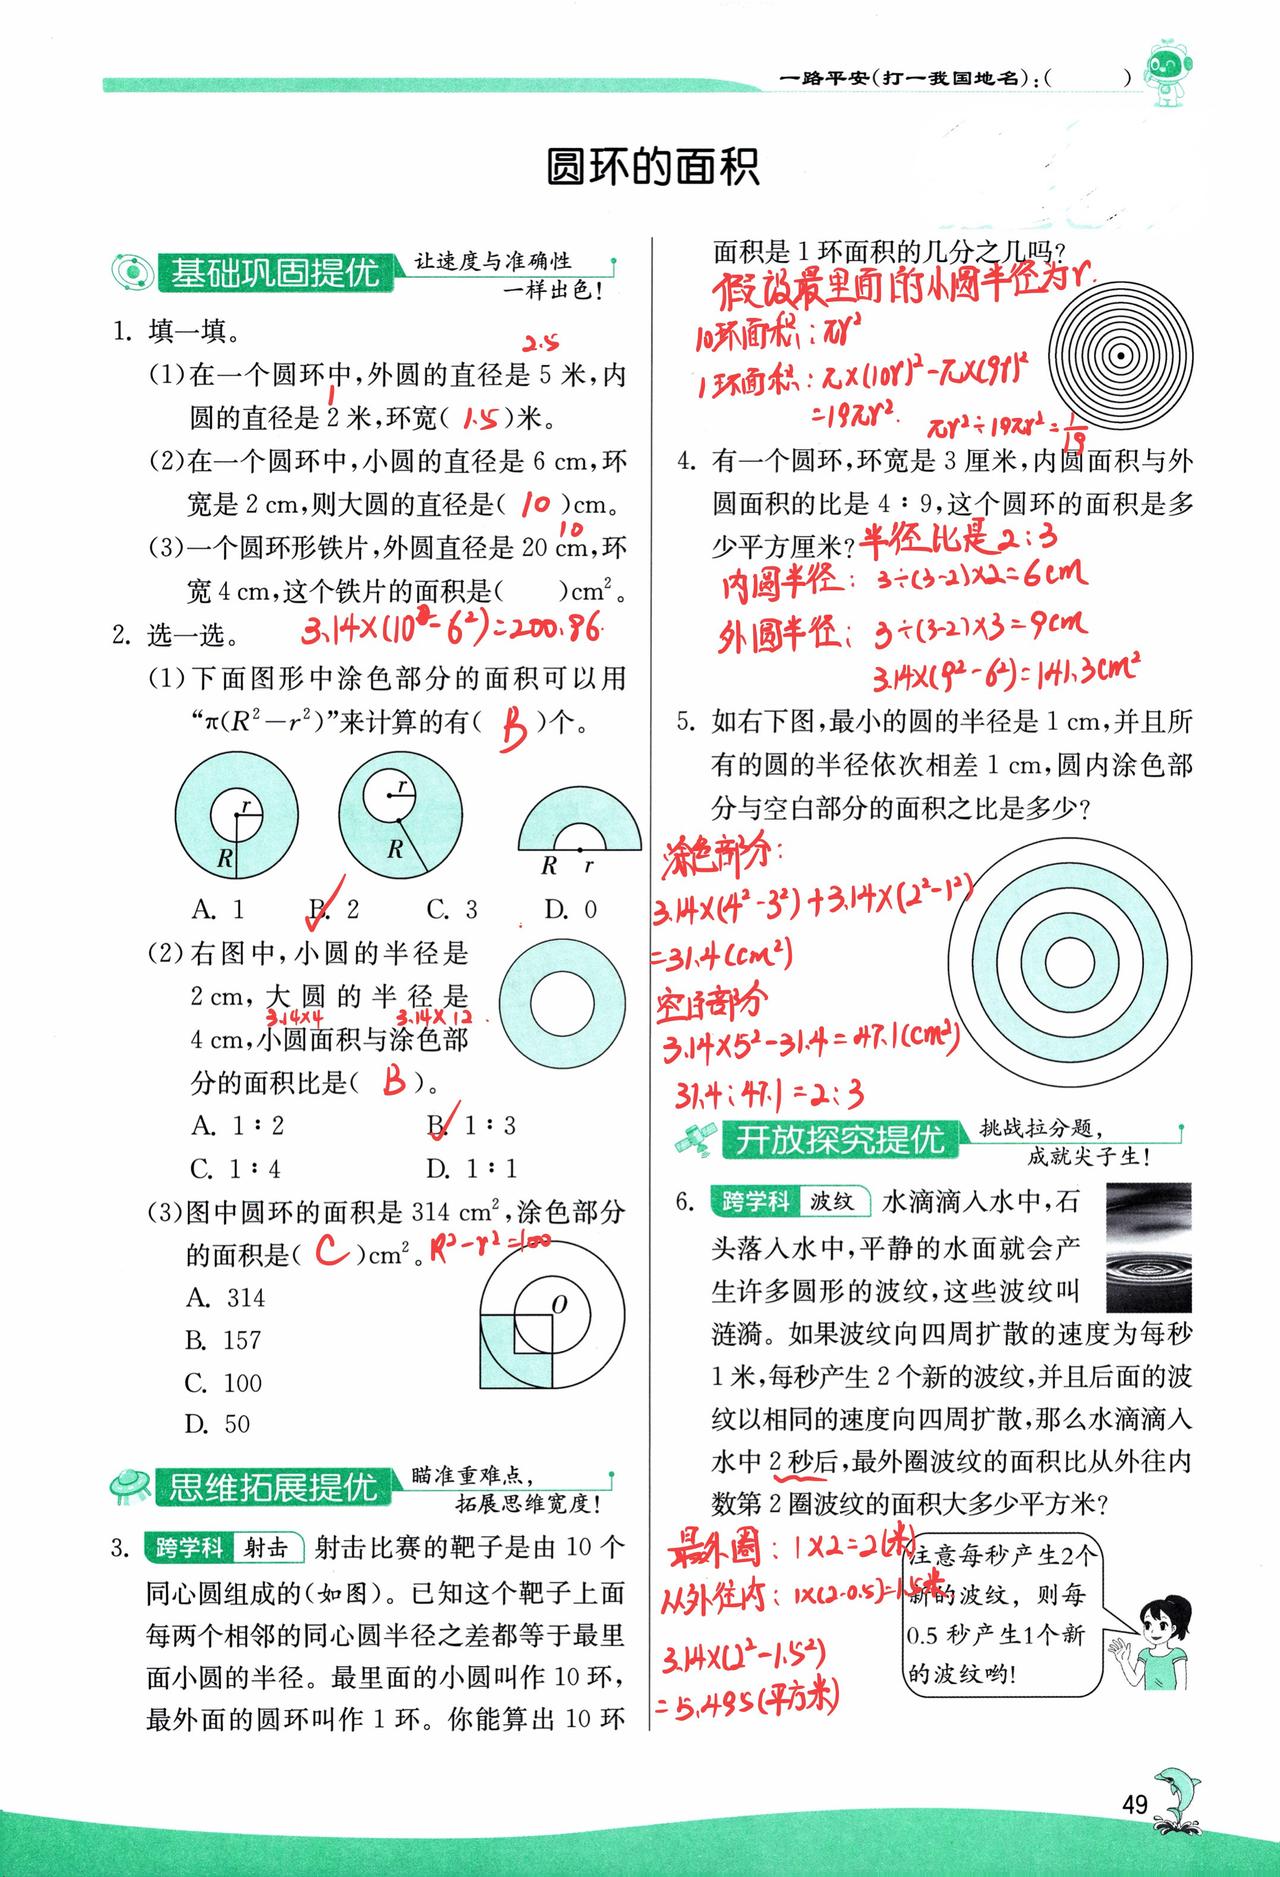 一路平安(打一我国地名):(      )
圆环的面积
基础巩固提优
让速度与准确性
一样出色!
1. 填一填。
2.5
(1)在一个圆环中,外圆的直径是 5 米,内
1
圆的直径是 2 米,环宽( 1.5 )米。
(2)在一个圆环中,小圆的直径是 6 cm,环
宽是 2 cm,则大圆的直径是( 10 )cm。
10
(3)一个圆环形铁片,外圆直径是 20 cm,环
宽 4 cm,这个铁片的面积是(      )cm²。
3.14×(10²-6²)=200.96
2. 选一选。
(1)下面图形中涂色部分的面积可以用
“π(R²-r²)”来计算的有( B )个。
r
R
r
R
R r
A. 1 B. 2 C. 3 D. 0
(2)右图中,小圆的半径是
2 cm,大圆的半径是
3.14×4 3.14×12
4 cm,小圆面积与涂色部
分的面积比是( B )。
A. 1∶2 B. 1∶3
C. 1∶4 D. 1∶1
(3)图中圆环的面积是 314 cm²,涂色部分
的面积是( C )cm²。R²-r²=100
O
A. 314
B. 157
C. 100
D. 50
思维拓展提优
瞄准重难点,
拓展思维宽度!
3. 跨学科 射击 射击比赛的靶子是由 10 个
同心圆组成的(如图)。已知这个靶子上面
每两个相邻的同心圆半径之差都等于最里
面小圆的半径。最里面的小圆叫作 10 环,
最外面的圆环叫作 1 环。你能算出 10 环
面积是 1 环面积的几分之几吗?
假设最里面的小圆半径为r.
10环面积:πr²
1环面积:π×(10r)²-π×(9r)²
=19πr². πr²÷19πr²=1/19
4. 有一个圆环,环宽是 3 厘米,内圆面积与外
圆面积的比是 4∶9,这个圆环的面积是多
少平方厘米?半径比是2:3
内圆半径: 3÷(3-2)×2=6cm
外圆半径: 3÷(3-2)×3=9cm
3.14×(9²-6²)=141.3cm²
5. 如右下图,最小的圆的半径是 1 cm,并且所
有的圆的半径依次相差 1 cm,圆内涂色部
分与空白部分的面积之比是多少?
涂色部分:
3.14×(4²-3²)+3.14×(2²-1²)
=31.4(cm²)
空白部分
3.14×5²-31.4=47.1(cm²)
31.4:47.1=2:3
开放探究提优
挑战拉分题,
成就尖子生!
6. 跨学科 波纹 水滴滴入水中,石
头落入水中,平静的水面就会产
生许多圆形的波纹,这些波纹叫
涟漪。如果波纹向四周扩散的速度为每秒
1 米,每秒产生 2 个新的波纹,并且后面的波
纹以相同的速度向四周扩散,那么水滴滴入
水中 2 秒后,最外圈波纹的面积比从外往内
数第 2 圈波纹的面积大多少平方米?
最外圈:1×2=2(米)
从外往内:1×(2-0.5)=1.5米
3.14×(2²-1.5²)
=5.495(平方米)
注意每秒产生2个
新的波纹,则每
0.5 秒产生1个新
的波纹哟!
49